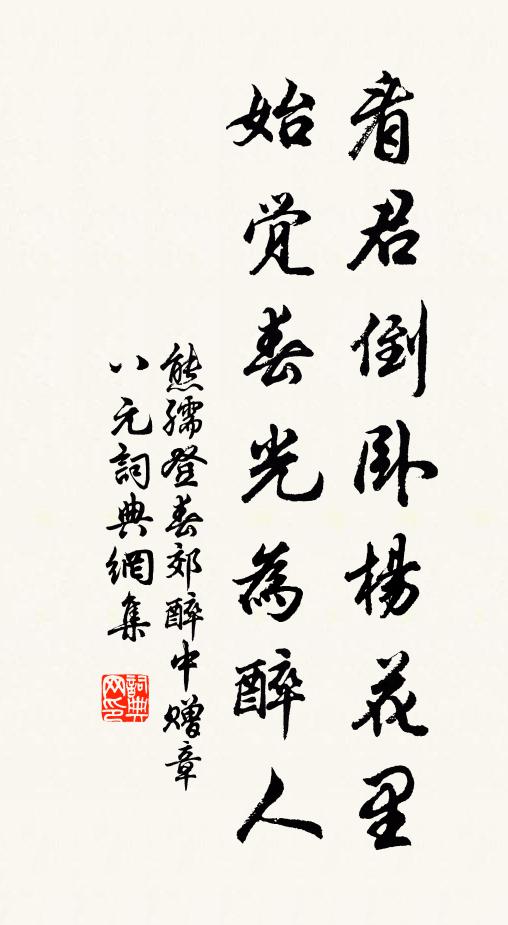 看君倒卧楊花里
始觉春光為醉人
熊孺登春郊醉中赠章
八元詞典網集
詞典网印